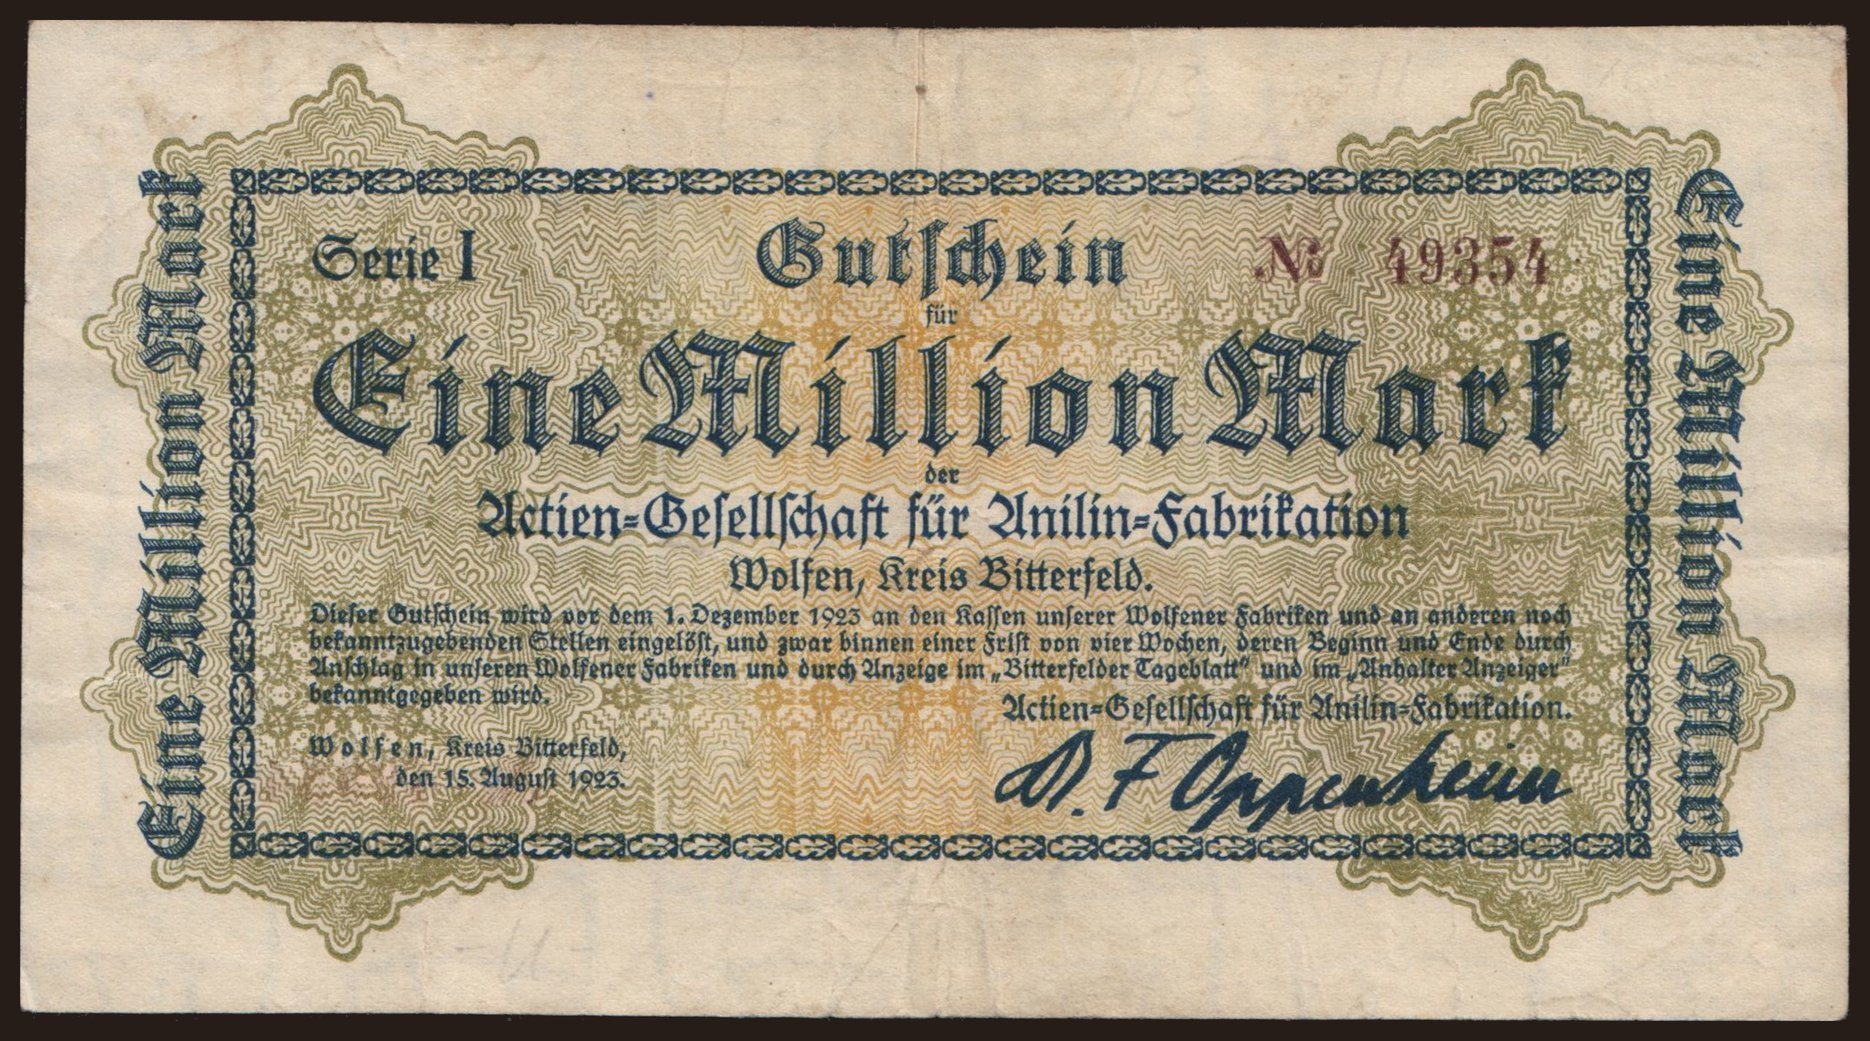 Serie I
Gutschein
№ 49354
für
Eine Million Mark
der
Actien-Gesellschaft für Anilin-Fabrikation
Wolfen, Kreis Bitterfeld.
Dieser Gutschein wird vor dem 1. Dezember 1923 an den Kassen unserer Wolfener Fabriken und an anderen noch
bekanntzugebenden Stellen eingelöst, und zwar binnen einer Frist von vier Wochen, deren Beginn und Ende durch
Anschlag in unseren Wolfener Fabriken und durch Anzeige im „Bitterfelder Tageblatt" und im „Anhalter Anzeiger"
bekanntgegeben wird.
Actien-Gesellschaft für Anilin-Fabrikation.
Wolfen, Kreis Bitterfeld,
den 15. August 1923.
F Oppenheim
Eine Million Mark
Eine Million Mark